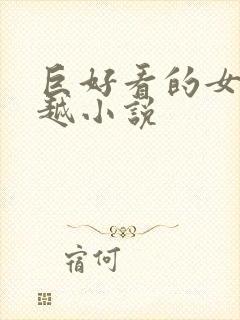 巨好看的女
越小说
宿何